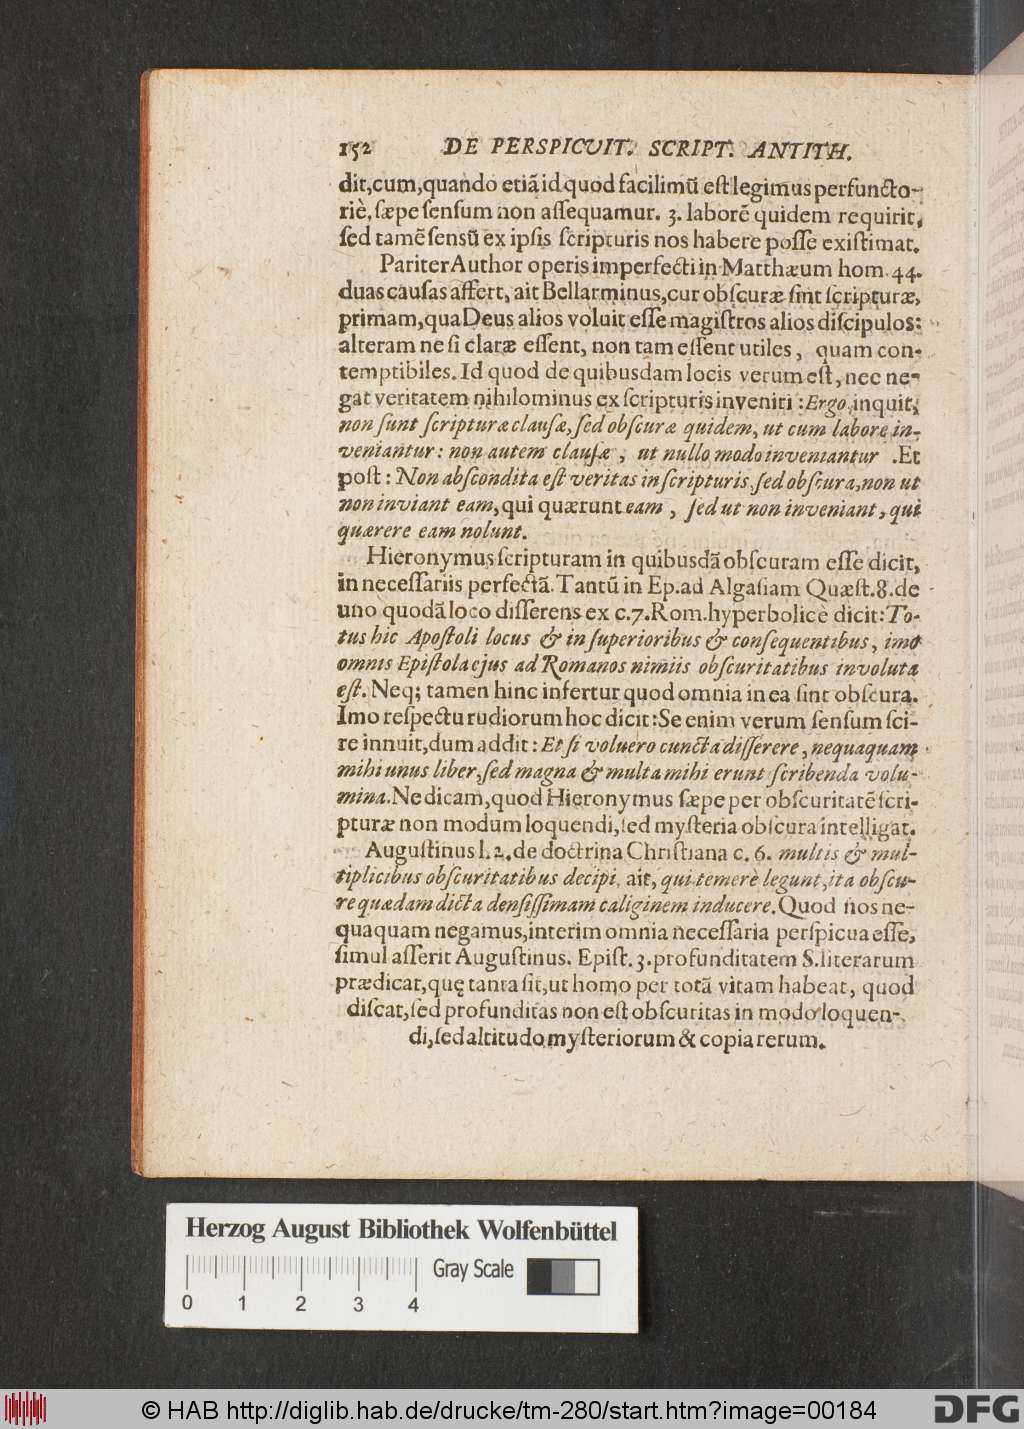 152 DE PERSPICVIT. SCRIPT. ANTITH.
dit,cum,quando etiā id quod facilimū eſt legimus perfuncto-
riè, ſæpe ſenſum non aſſequamur. 3. laborē quidem requirit,
ſed tamē ſensū ex ipſis ſcripturis nos habere poſſe exiſtimat.
Pariter Author operis imperfecti in Matthæum hom. 44.
duas cauſas affert, ait Bellarminus, cur obſcuræ ſint ſcripturæ,
primam, qua Deus alios voluit eſſe magiſtros alios diſcipulos:
alteram ne ſi claræ eſſent, non tam eſſent utiles, quam con-
temptibiles. Id quod de quibusdam locis verum eſt, nec ne-
gat veritatem nihilominus ex ſcripturis inveniri : Ergo, inquit,
non ſunt ſcripturæ clauſæ, ſed obſcuræ quidem, ut cum labore in-
veniantur: non autem clauſæ, ut nullo modo inveniantur. Et
poſt : Non abſcondita eſt veritas in ſcripturis, ſed obſcura, non ut
non inviant eam, qui quærunt eam, ſed ut non inveniant, qui
quærere eam nolunt.
Hieronymus ſcripturam in quibusdā obſcuram eſſe dicit,
in neceſſariis perfectā. Tantū in Ep. ad Algaſiam Quæſt. 8. de
uno quodā loco diſſerens ex c. 7. Rom. hyperbolicè dicit: To-
tus hic Apoſtoli locus & in ſuperioribus & conſequentibus, imo
omnis Epiſtola ejus ad Romanos nimiis obſcuritatibus involuta
eſt. Neq; tamen hinc infertur quod omnia in ea ſint obſcura.
Imo reſpectu rudiorum hoc dicit: Se enim verum ſenſum ſci-
re innuit, dum addit : Et ſi voluero cuncta diſſerere, nequaquam
mihi unus liber, ſed magna & multa mihi erunt ſcribenda volu-
mina. Ne dicam, quod Hieronymus ſæpe per obſcuritatē ſcri-
pturæ non modum loquendi, ſed myſteria obſcura intelligat.
Auguſtinus l. 2. de doctrina Chriſtiana c. 6. multis & mul-
tiplicibus obſcuritatibus decipi, ait, qui temerè legunt, ita obſcu-
re quædam dicta denſiſſimam caliginem inducere. Quod nos ne-
quaquam negamus, interim omnia neceſſaria perſpicua eſſe,
ſimul aſſerit Auguſtinus. Epiſt. 3. profunditatem S. literarum
prædicat, quę tanta ſit, ut homo per totā vitam habeat, quod
diſcat, ſed profunditas non eſt obſcuritas in modo loquen-
di, ſed altitudo myſteriorum & copia rerum.
Herzog August Bibliothek Wolfenbüttel
Gray Scale
0 1 2 3 4
© HAB http://diglib.hab.de/drucke/tm-280/start.htm?image=00184
DFG